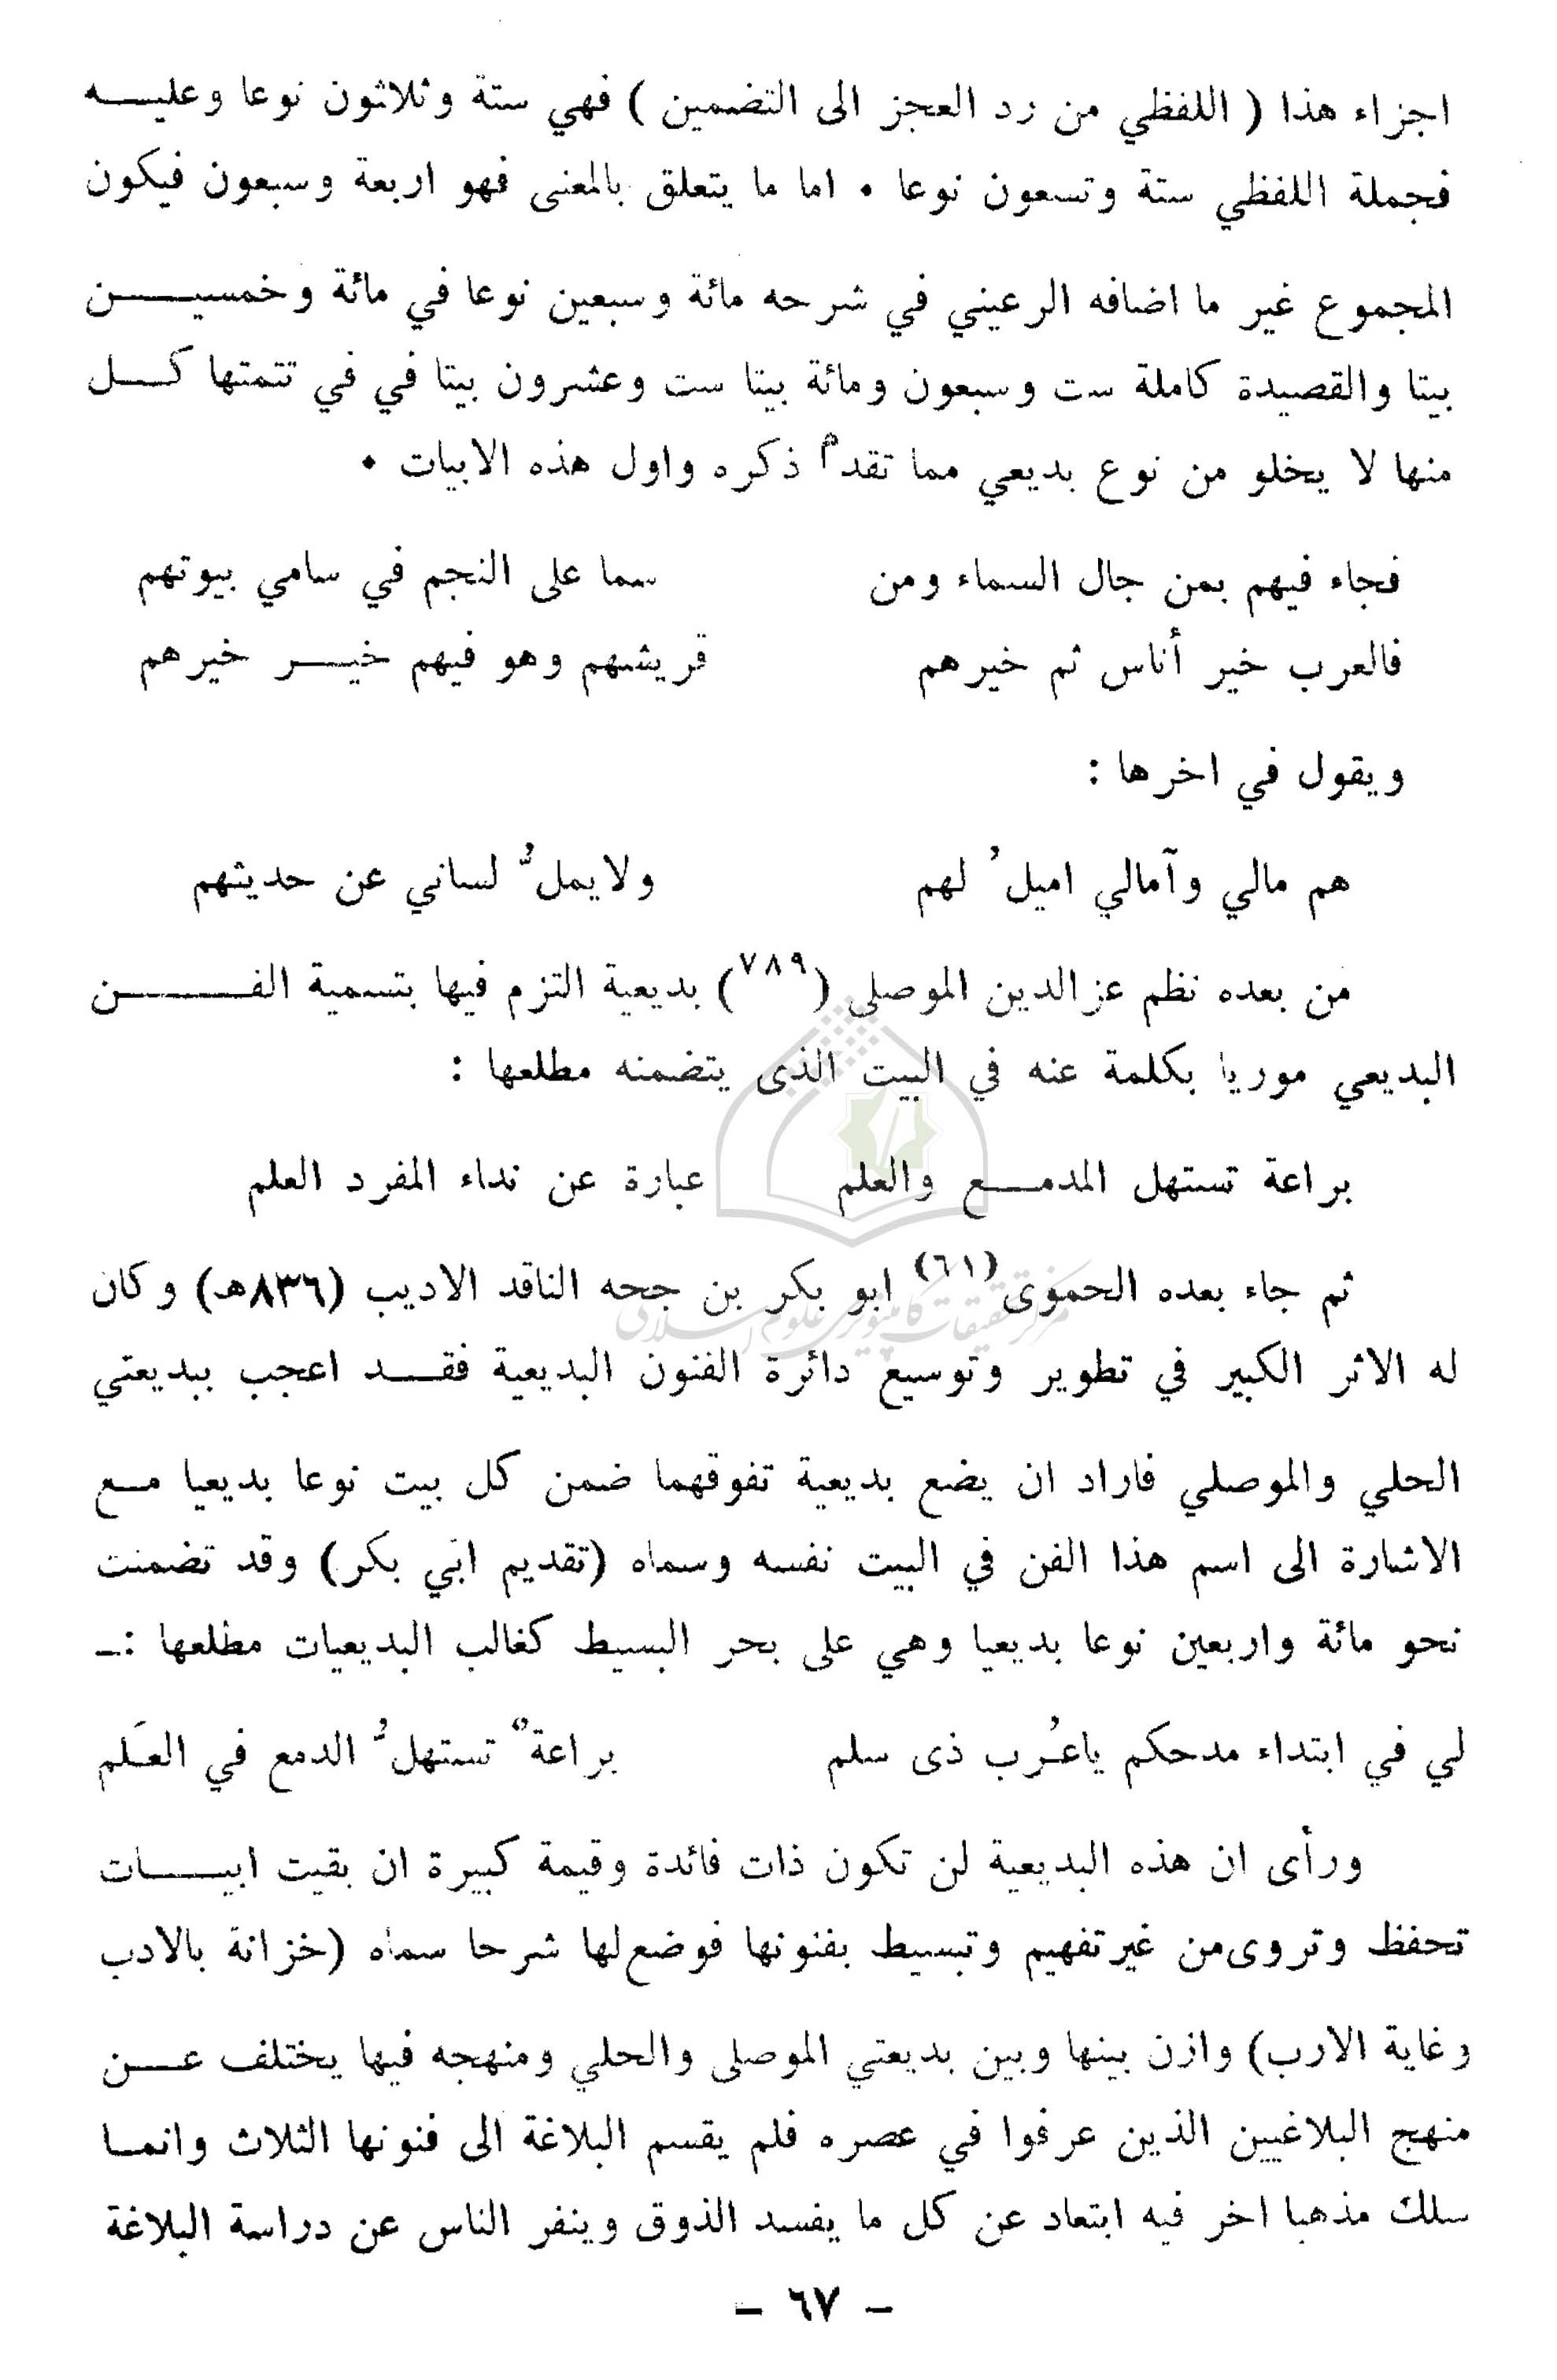 اجزاء هذا ( اللفظي من رد العجز الى التضمين ) فهي ستة وثلاثون نوعا وعليه
فجملة اللفظي ستة وتسعون نوعا ٠ اما ما يتعلق بالمعنى فهو اربعة وسبعون فيكون
المجموع غير ما اضافه الرعيني في شرحه مائة وسبعين نوعا في مائة وخمسين
بيتا والقصيدة كاملة ست وسبعون ومائة بيتا ست وعشرون بيتا في في تتمتها كل
منها لا يخلو من نوع بديعي مما تقدم ذكره واول هذه الابيات ٠
فجاء فيهم بمن جال السماء ومن سما على النجم في سامي بيوتهم
فالعرب خير أناس ثم خيرهم قريشهم وهو فيهم خير خيرهم
ويقول في اخرها :
هم مالي وآمالي اميلُ لهم ولايملُّ لساني عن حديثهم
من بعده نظم عزالدين الموصلى (٧٨٩) بديعية التزم فيها بتسمية الفن
البديعي موريا بكلمة عنه في البيت الذى يتضمنه مطلعها :
براعة تستهل المدمع والعلم عبارة عن نداء المفرد العلم
ثم جاء بعده الحموى(٦١) ابو بكر بن جحه الناقد الاديب (٨٣٦هـ) وكان
له الاثر الكبير في تطوير وتوسيع دائرة الفنون البديعية فقد اعجب ببديعتي
الحلي والموصلي فاراد ان يضع بديعية تفوقهما ضمن كل بيت نوعا بديعيا مع
الاشارة الى اسم هذا الفن في البيت نفسه وسماه (تقديم ابي بكر) وقد تضمنت
نحو مائة واربعين نوعا بديعيا وهي على بحر البسيط كغالب البديعيات مطلعها :ـ
لي في ابتداء مدحكم ياعُرب ذى سلم براعةٌ تستهلُّ الدمع في العَلم
ورأى ان هذه البديعية لن تكون ذات فائدة وقيمة كبيرة ان بقيت ابيات
تحفظ وتروى من غير تفهيم وتبسيط بفنونها فوضع لها شرحا سماه (خزانة بالادب
وغاية الارب) وازن بينها وبين بديعتي الموصلى والحلي ومنهجه فيها يختلف عن
منهج البلاغيين الذين عرفوا في عصره فلم يقسم البلاغة الى فنونها الثلاث وانما
سلك مذهبا اخر فيه ابتعاد عن كل ما يفسد الذوق وينفر الناس عن دراسة البلاغة
ـ ٦٧ ـ
مرکز تحقیقات کامپیوتری علوم اسلامی